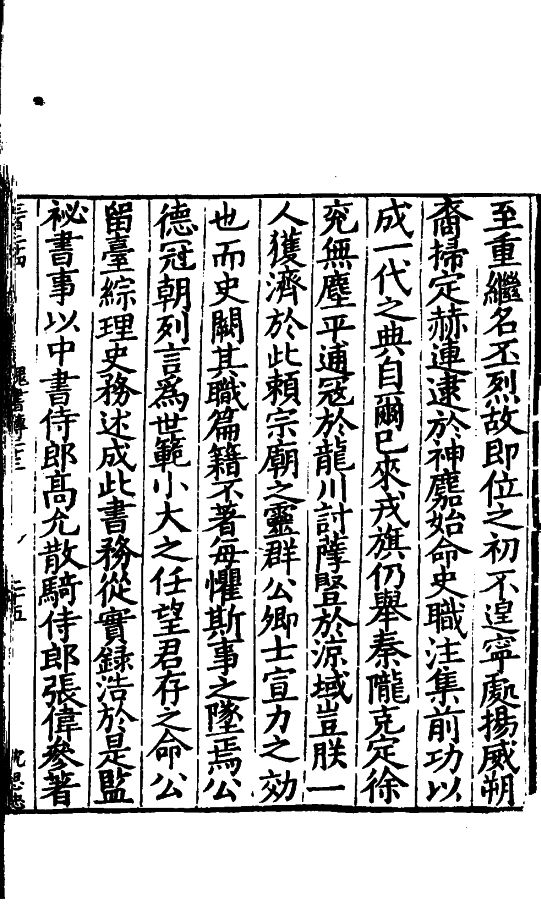 至重繼名丕烈故即位之初不遑寧處揚威朔
裔掃定赫連逮於神䴥始命史職注集前功以
成一代之典自爾已來戎旗仍舉秦隴克定徐
兖無塵平逋寇於龍川討孽豎於涼域豈朕一
人獲濟於此賴宗廟之靈群公卿士宣力之効
也而史闕其職篇籍不著每懼斯事之墜焉公
德冠朝列言爲世範小大之任望君存之命公
留臺綜理史務述成此書務從實録浩於是監
祕書事以中書侍郎髙允散騎侍郎張偉參著
魏書傳二十三
二十五